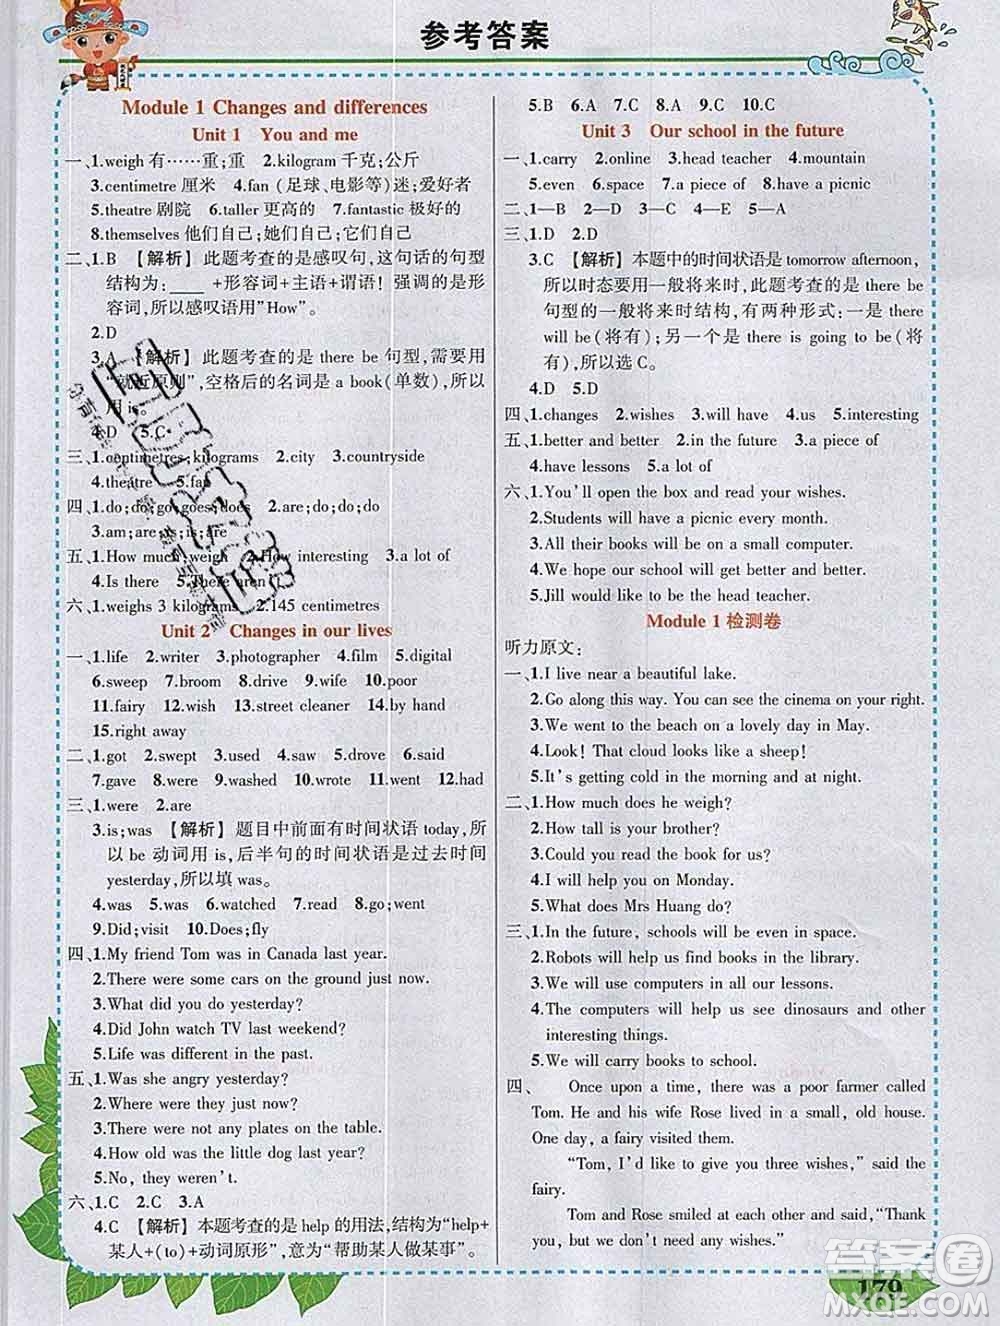 参考答案
Module 1 Changes and differences
Unit 1 You and me
一、1.weigh 有……重;重 2.kilogram 千克;公斤
3.centimetre 厘米 4.fan (足球、电影等)迷;爱好者
5.theatre 剧院 6.taller 更高的 7.fantastic 极好的
8.themselves 他们自己;她们自己;它们自己
二、1.B 【解析】 此题考查的是感叹句,这句话的句型
结构为:____ +形容词+主语+谓语! 强调的是形
容词,所以感叹语用"How"。
2.D
3.A 【解析】 此题考查的是 there be 句型,需要用
"就近原则",空格后的名词是 a book(单数),所以
用 is。
4.D 5.C
三、1.centimetres;kilograms 2.city 3.countryside
4.theatre 5.fan
四、1.do;do;go;goes;does 2.are;do;do;do
3.am;are;is;is;are
五、1.How much;weigh 2.How interesting 3.a lot of
4.Is there 5.There aren't
六、1.weighs 3 kilograms 2.145 centimetres
Unit 2 Changes in our lives
一、1.life 2.writer 3.photographer 4.film 5.digital
6.sweep 7.broom 8.drive 9.wife 10.poor
11.fairy 12.wish 13.street cleaner 14.by hand
15.right away
二、1.got 2.swept 3.used 4.saw 5.drove 6.said
7.gave 8.were 9.washed 10.wrote 11.went 12.had
三、1.were 2.are
3.is;was 【解析】 题目中前面有时间状语 today,所
以 be 动词用 is,后半句的时间状语是过去时间
yesterday,所以填 was。
4.was 5.was 6.watched 7.read 8.go;went
9.Did;visit 10.Does;fly
四、1.My friend Tom was in Canada last year.
2.There were some cars on the ground just now.
3.What did you do yesterday?
4.Did John watch TV last weekend?
5.Life was different in the past.
五、1.Was she angry yesterday?
2.Where were they just now?
3.There were not any plates on the table.
4.How old was the little dog last year?
5.No, they weren't.
六、1.C 2.C 3.A
4.C 【解析】 本题考查的是 help 的用法,结构为"help+
某人+(to)+动词原形",意为"帮助某人做某事"。
5.B 6.A 7.C 8.A 9.C 10.C
Unit 3 Our school in the future
一、1.carry 2.online 3.head teacher 4.mountain
5.even 6.space 7.a piece of 8.have a picnic
二、1—B 2—D 3—A 4—E 5—C
三、1.D 2.D
3.C 【解析】 本题中的时间状语是 tomorrow afternoon,
所以时态要用一般将来时,此题考查的是 there be
句型的一般将来时结构,有两种形式:一是 there
will be(将有);另一个是 there is going to be(将
有),所以选 C。
4.D 5.D
四、1.changes 2.wishes 3.will have 4.us 5.interesting
五、1.better and better 2.in the future 3.a piece of
4.have lessons 5.a lot of
六、1.You'll open the box and read your wishes.
2.Students will have a picnic every month.
3.All their books will be on a small computer.
4.We hope our school will get better and better.
5.Jill would like to be the head teacher.
Module 1 检测卷
听力原文:
一、1.I live near a beautiful lake.
2.Go along this way. You can see the cinema on your right.
3.We went to the beach on a lovely day in May.
4.Look! That cloud looks like a sheep!
5.It's getting cold in the morning and at night.
二、1.How much does he weigh?
2.How tall is your brother?
3.Could you read the book for us?
4.I will help you on Monday.
5.What does Mrs Huang do?
三、1.In the future, schools will be even in space.
2.Robots will help us find books in the library.
3.We will use computers in all our lessons.
4.The computers will help us see dinosaurs and other
interesting things.
5.We will carry books to school.
四、 Once upon a time, there was a poor farmer called
Tom. He and his wife Rose lived in a small, old house.
One day, a fairy visited them.
"Tom, I'd like to give you three wishes," said the
fairy.
Tom and Rose smiled at each other and said,"Thank
you, but we don't need any wishes."
179
答案圈
MXQE.COM